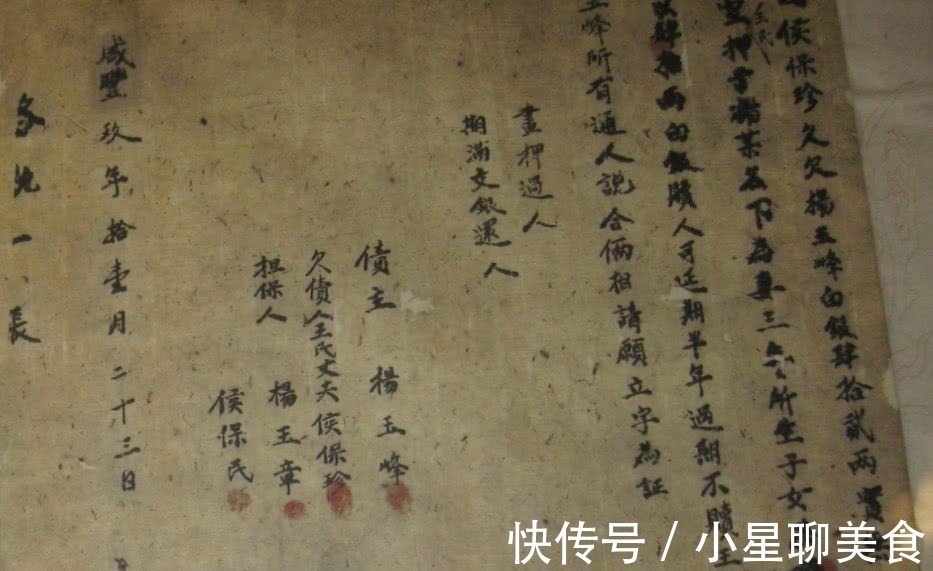 侯保珍久欠楊玉峰白銀肆拾貳兩實
王氏
室押于某名下為妻三所生子女
肆拾兩白銀贖人可延期半年過期不贖王
玉峰所有通人說合倆相請願立字為証
畫押過人
期滿交銀還人
債主 楊玉峰
欠債人王氏丈夫侯保珍
担保人 楊玉章
侯保民
咸豐玖年拾壹月二十三日
一長
快传号 / 小星聊美食